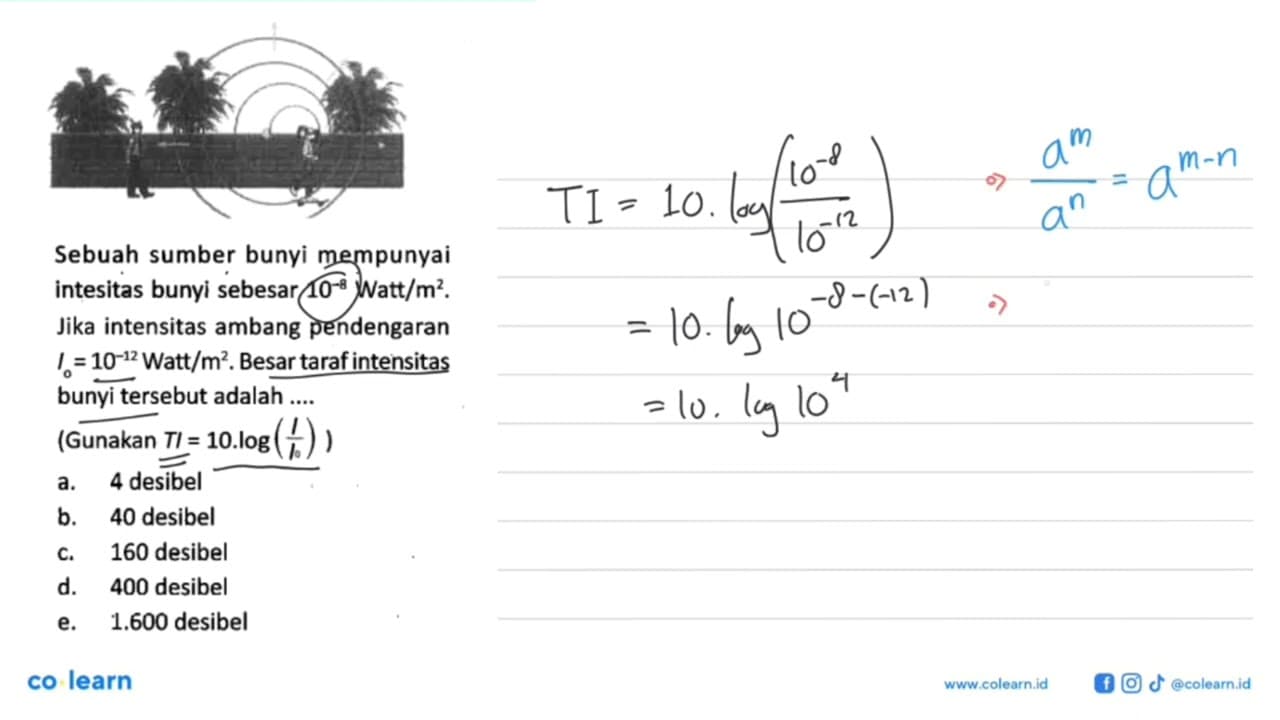 Sebuah sumber bunyi mempunyai
intesitas bunyi sebesar 10⁻⁸ Watt/m².
Jika intensitas ambang pendengaran
I₀ = 10⁻¹² Watt/m². Besar taraf intensitas
bunyi tersebut adalah ....
(Gunakan TI = 10.log(I/I₀))
a. 4 desibel
b. 40 desibel
c. 160 desibel
d. 400 desibel
e. 1.600 desibel
TI = 10. log(10⁻⁸/10⁻¹²)
= 10. log 10⁻⁸⁻⁽⁻¹²⁾
= 10. log 10⁴
=> aᵐ/aⁿ = aᵐ⁻ⁿ
=>
co learn
www.colearn.id
@colearn.id